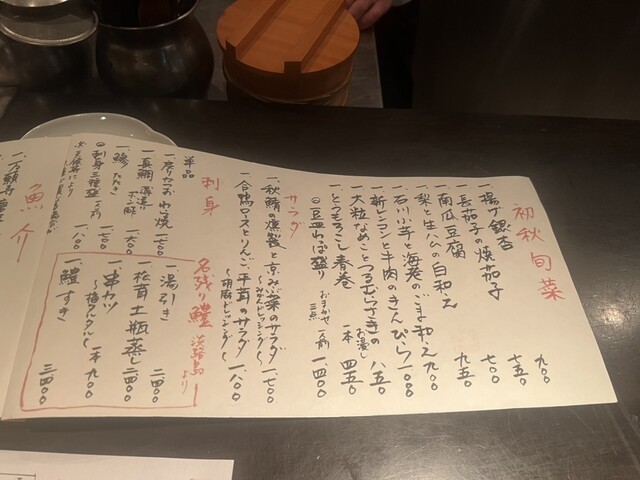 初秋旬菜
一、揚げ銀杏 九〇〇
一、長茄子の焼茄子 七五〇
一、南瓜豆腐 七〇〇
一、梨と生ハムの白和え 九五〇
一、石川小芋と海老のごま和え 九〇〇
一、新レンコンと牛肉のきんぴら 一、一〇〇
一、大粒なめことつるむらさきのお浸し 八五〇
一、とうもろこし春巻 一本 四五〇
◎豆皿わば盛り おまかせ 一人前 三点 一、四〇〇
サラダ
一、秋鯖の燻製と京みぶ菜のサラダ 一、七〇〇
〜みかんドレッシング〜
一、合鴨ロースとりんご、平茸のサラダ 一、八〇〇
〜胡麻ドレッシング〜
名残り鱧 淡路島より
一、湯引き 二、四〇〇
一、松茸土瓶蒸し 二、四〇〇
一、串カツ 一本 九〇〇
〜梅タルタル〜
一、鱧すき 三、四〇〇
刺身
単品
一、戻りかつおわら焼 一、七〇〇
一、真鯛 薄造り ポン酢 一、六〇〇
一、鯵たたき 一、〇〇〇
◎刺身三種盛 一人前 一、八〇〇
魚介